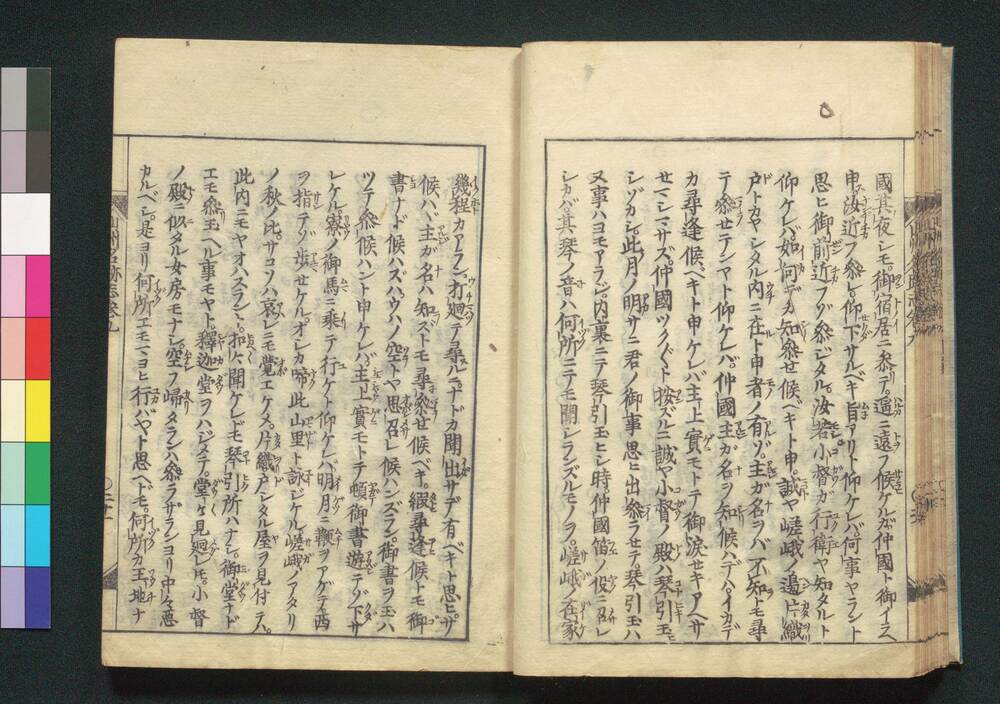 國其夜シモ。御宿居ニ参テ。遥ニ遠フ候ケルガ仲國ト御イラヘ
申。汝近フ参レ。仰下サルベキ旨アリト仰ケレバ。何事ヤラント
思ヒ御前近フゾ参ジタル。汝若小督ガ行衛ヤ知タルト
仰ケレバ。如何デカ知参せ候ベキト申。誠ヤ嵯峨ノ邉片織
戸トカヤシタル内ニ在ト申者ノ有ゾ。主ガ名ヲバ不知トモ尋
テ参せテンヤト仰ケレバ。仲國主ガ名ヲ知候ハデハ。イカデ
カ尋逢候ベキト申ケレバ主上實モトテ御涙せキアヘサ
せマシマサズ。仲國ツクヅクト按ズルニ誠ヤ小督ノ殿ハ琴引玉
シゾカシ。此月ノ明サニ君ノ御事思ヒ出参ラせテ。琴引玉ハ
又事ハヨモアラジ。内裏ニテ琴引玉ヒシ時仲國笛ノ役ニ召レ
シカバ其琴ノ音ハ何所ニテモ聞シランズルモノヲ。嵯峨ノ在家
幾程カアラン。打廻テ尋ルニナドカ聞出サデ有ベキト思ヒ。サ
候ハヾ主ガ名ハ知ズトモ尋参せ候ベキ。縦尋逢候トモ御
書ナド候ハズハウハノ空トヤ思召レ候ハンズラン。御書ヲ玉ハ
ツテ参候ハント申ケレバ主上實モトテ頓御書遊テゾ下サ
レケル。寮ノ御馬ニ乗テ行ケト仰ケレバ明月ニ鞭ヲアゲテ西
ヲ指テゾ歩せケル。オシカ啼此山里ト詠ジケル嵯峨ノアタリ
ノ秋ノ比。サコソハ哀レニモ覺エケメ。片織戸シタル屋ヲ見付テハ。
此内ニモヤオハスラント。扣ヘ〳〵聞ケレドモ琴引所ハナシ。御堂ナド
エモ参玉ヘル事モヤト。釋迦堂ヲハジメテ堂〳〵見廻レ𪜈。小督
ノ殿ニ似タル女房モナシ。空フ帰タランハ参ラザランヨリ中々悪
カルベシ。是ヨリ何所エモマヨヒ行バヤト思ヘドモ。何所カ王地ナ
山州名跡志巻九